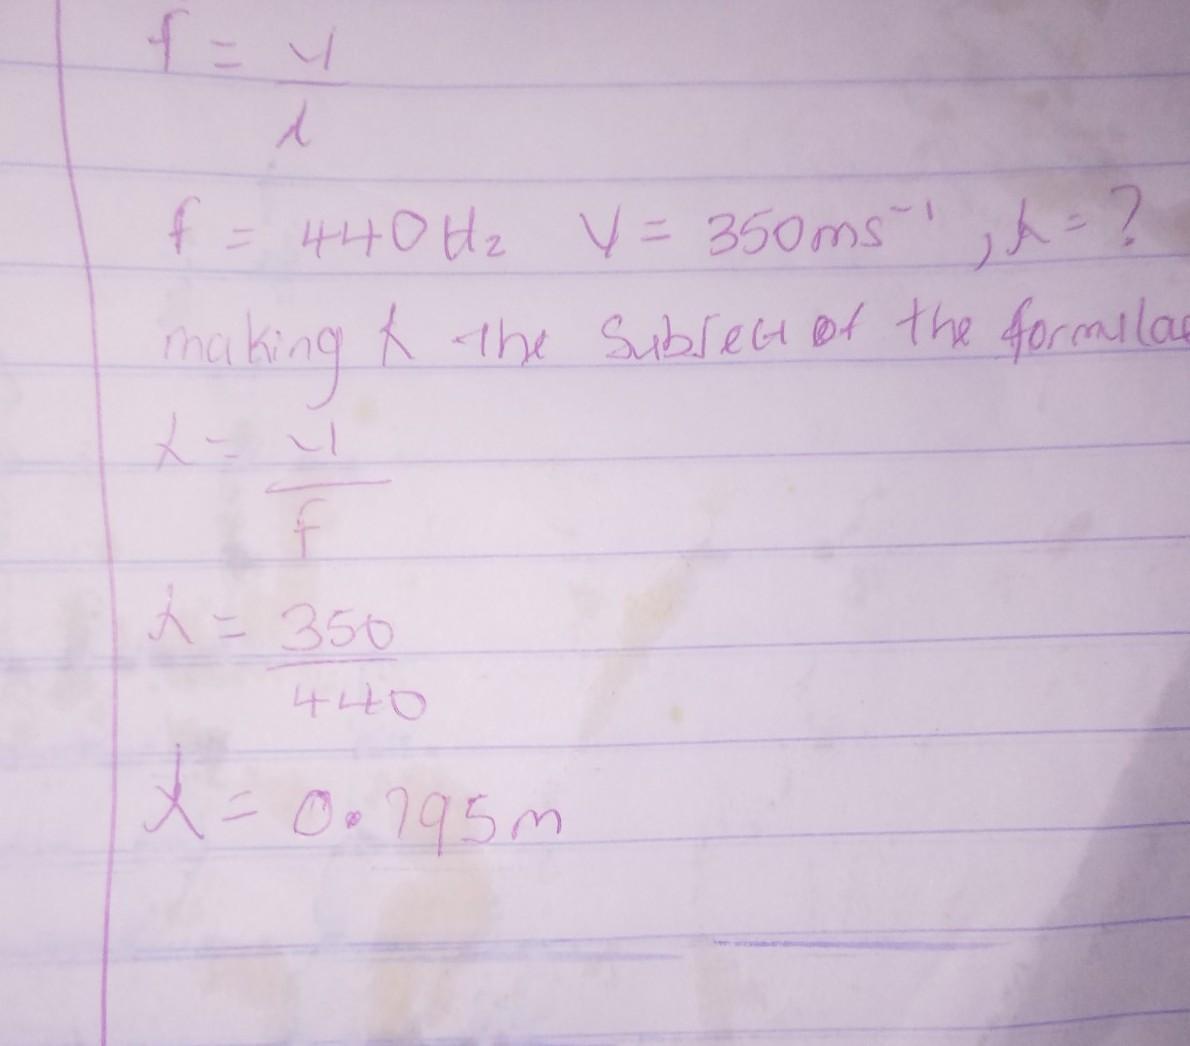 f = V
λ
f = 440Hz V = 350ms⁻¹, λ = ?
making λ the Subject of the formulae
λ = V
f
λ = 350
440
λ = 0.795m